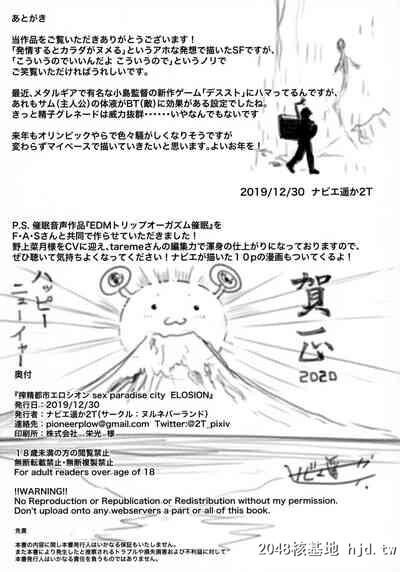 あとがき
当作品をご覧いただきありがとうございます！
「発情するとカラダがヌメる」というアホな発想で描いたSFですが、
「こういうのでいいんだよ こういうので」というノリで
ご笑覧いただければうれしいです。
最近、メタルギアで有名な小島監督の新作ゲーム「デススト」にハマってるんですが、
あれもサム（主人公）の体液がBT（敵）に効果がある設定でしたね。
きっと精子グレネードは威力抜群･･････いやなんでもないです
来年もオリンピックやらで色々騒がしくなりそうですが
変わらずマイペースで描いていきたいと思います。よいお年を！
2019/12/30 ナビエ遥か2T
P.S. 催眠音声作品『EDMトリップオーガズム催眠』を
F・A・Sさんと共同で作らせていただきました！
野上菜月様をCVに迎え、taremeさんの編集力で渾身の仕上がりになっておりますので、
ぜひ聴いて気持ちよくなってください！ナビエが描いた１０pの漫画もついてくるよ！
ハッピー
ニューイヤー
賀正
2020
奥付
『搾精都市エロシオン sex paradise city ELOSION』
発行日：2019/12/30
発行者：ナビエ遥か2T（サークル：ヌルネバーランド）
連絡先：pioneerplow@gmail.com Twitter:@2T_pixiv
印刷所：株式会社 栄光 様
１８歳未満の方の閲覧禁止
無断転載禁止・無断複製禁止
For adult readers over age of 18
!!WARNING!!
No Reproduction or Republication or Redistribution without my permission.
Don't upload onto any webservers a part or all of this book.
免責
本書の内容に関して本書発行人はいかなる保証もいたしません。
また本書により発生したと推察されるトラブルや損失損害および不利益に対して
本書発行人はいかなる責任を負うものではありません。
2048核基地 hjd.tw